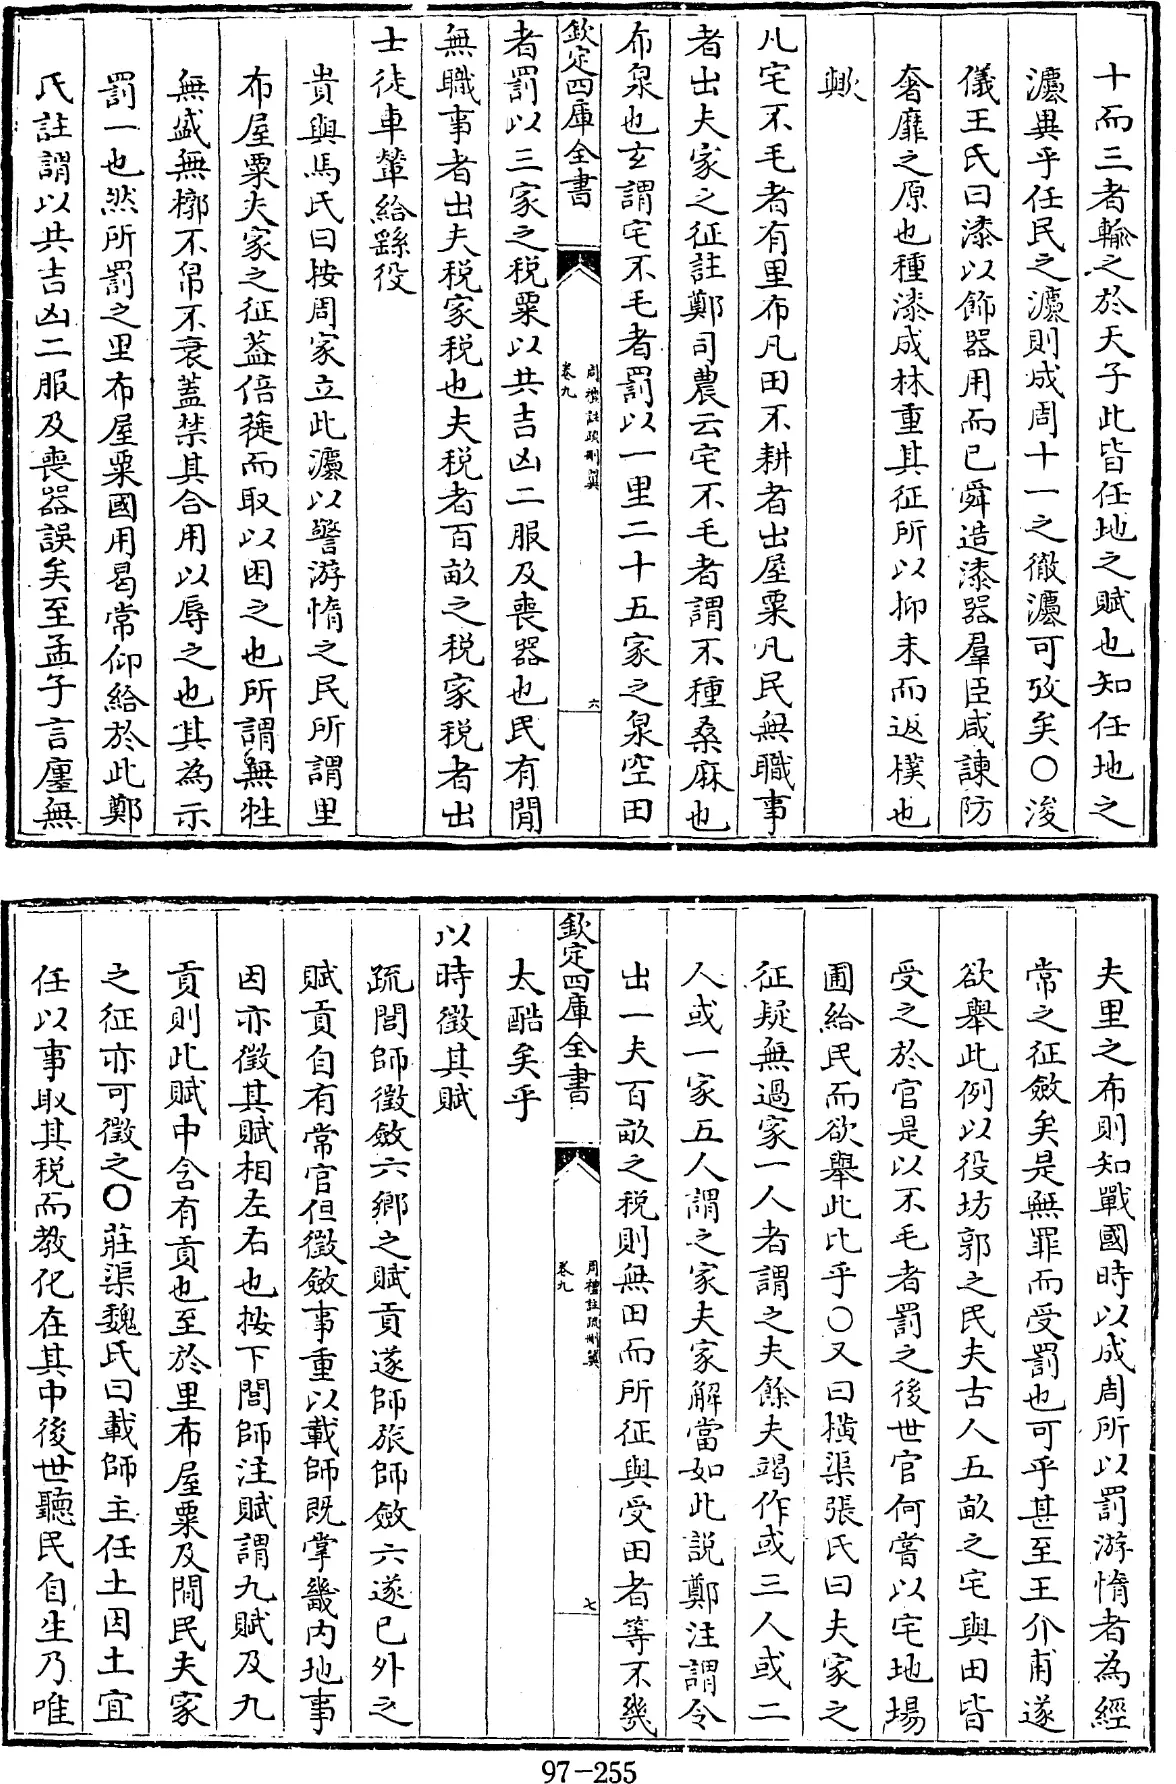 十而三者輸之於天子此皆任地之賦也知任地之
灋異乎任民之灋則成周十一之徹灋可攷矣○浚
儀王氏曰漆以飾器用而已舜造漆器羣臣咸諫防
奢靡之原也種漆成林重其征所以抑末而返樸也
歟
凡宅不毛者有里布凡田不耕者出屋粟凡民無職事
者出夫家之征註鄭司農云宅不毛者謂不種桑麻也
布泉也玄謂宅不毛者罰以一里二十五家之泉空田
欽定四庫全書
周禮註疏刪翼
卷九
六
者罰以三家之稅粟以共吉凶二服及喪器也民有閒
無職事者出夫稅家稅也夫稅者百畝之稅家稅者出
士徒車輦給繇役
貴與馬氏曰按周家立此灋以警游惰之民所謂里
布屋粟夫家之征蓋倍蓰而取以困之也所謂無牲
無盛無槨不帛不衰蓋禁其合用以辱之也其為示
罰一也然所罰之里布屋粟國用曷常仰給於此鄭
氏註謂以共吉凶二服及喪器誤矣至孟子言廛無
夫里之布則知戰國時以成周所以罰游惰者為經
常之征斂矣是無罪而受罰也可乎甚至王介甫遂
欲舉此例以役坊郭之民夫古人五畝之宅與田皆
受之於官是以不毛者罰之後世官何嘗以宅地場
圃給民而欲舉此比乎○又曰橫渠張氏曰夫家之
征疑無過家一人者謂之夫餘夫竭作或三人或二
人或一家五人謂之家夫家解當如此說鄭注謂令
出一夫百畝之稅則無田而所征與受田者等不幾
欽定四庫全書
周禮註疏刪翼
卷九
七
太酷矣乎
以時徵其賦
疏閭師徵斂六鄉之賦貢遂師旅師斂六遂已外之
賦貢自有常官但徵斂事重以載師既掌畿內地事
因亦徵其賦相左右也按下閭師注賦謂九賦及九
貢則此賦中含有貢也至於里布屋粟及閒民夫家
之征亦可徵之○莊渠魏氏曰載師主任土因土宜
任以事取其稅而教化在其中後世聽民自生乃唯
97-255